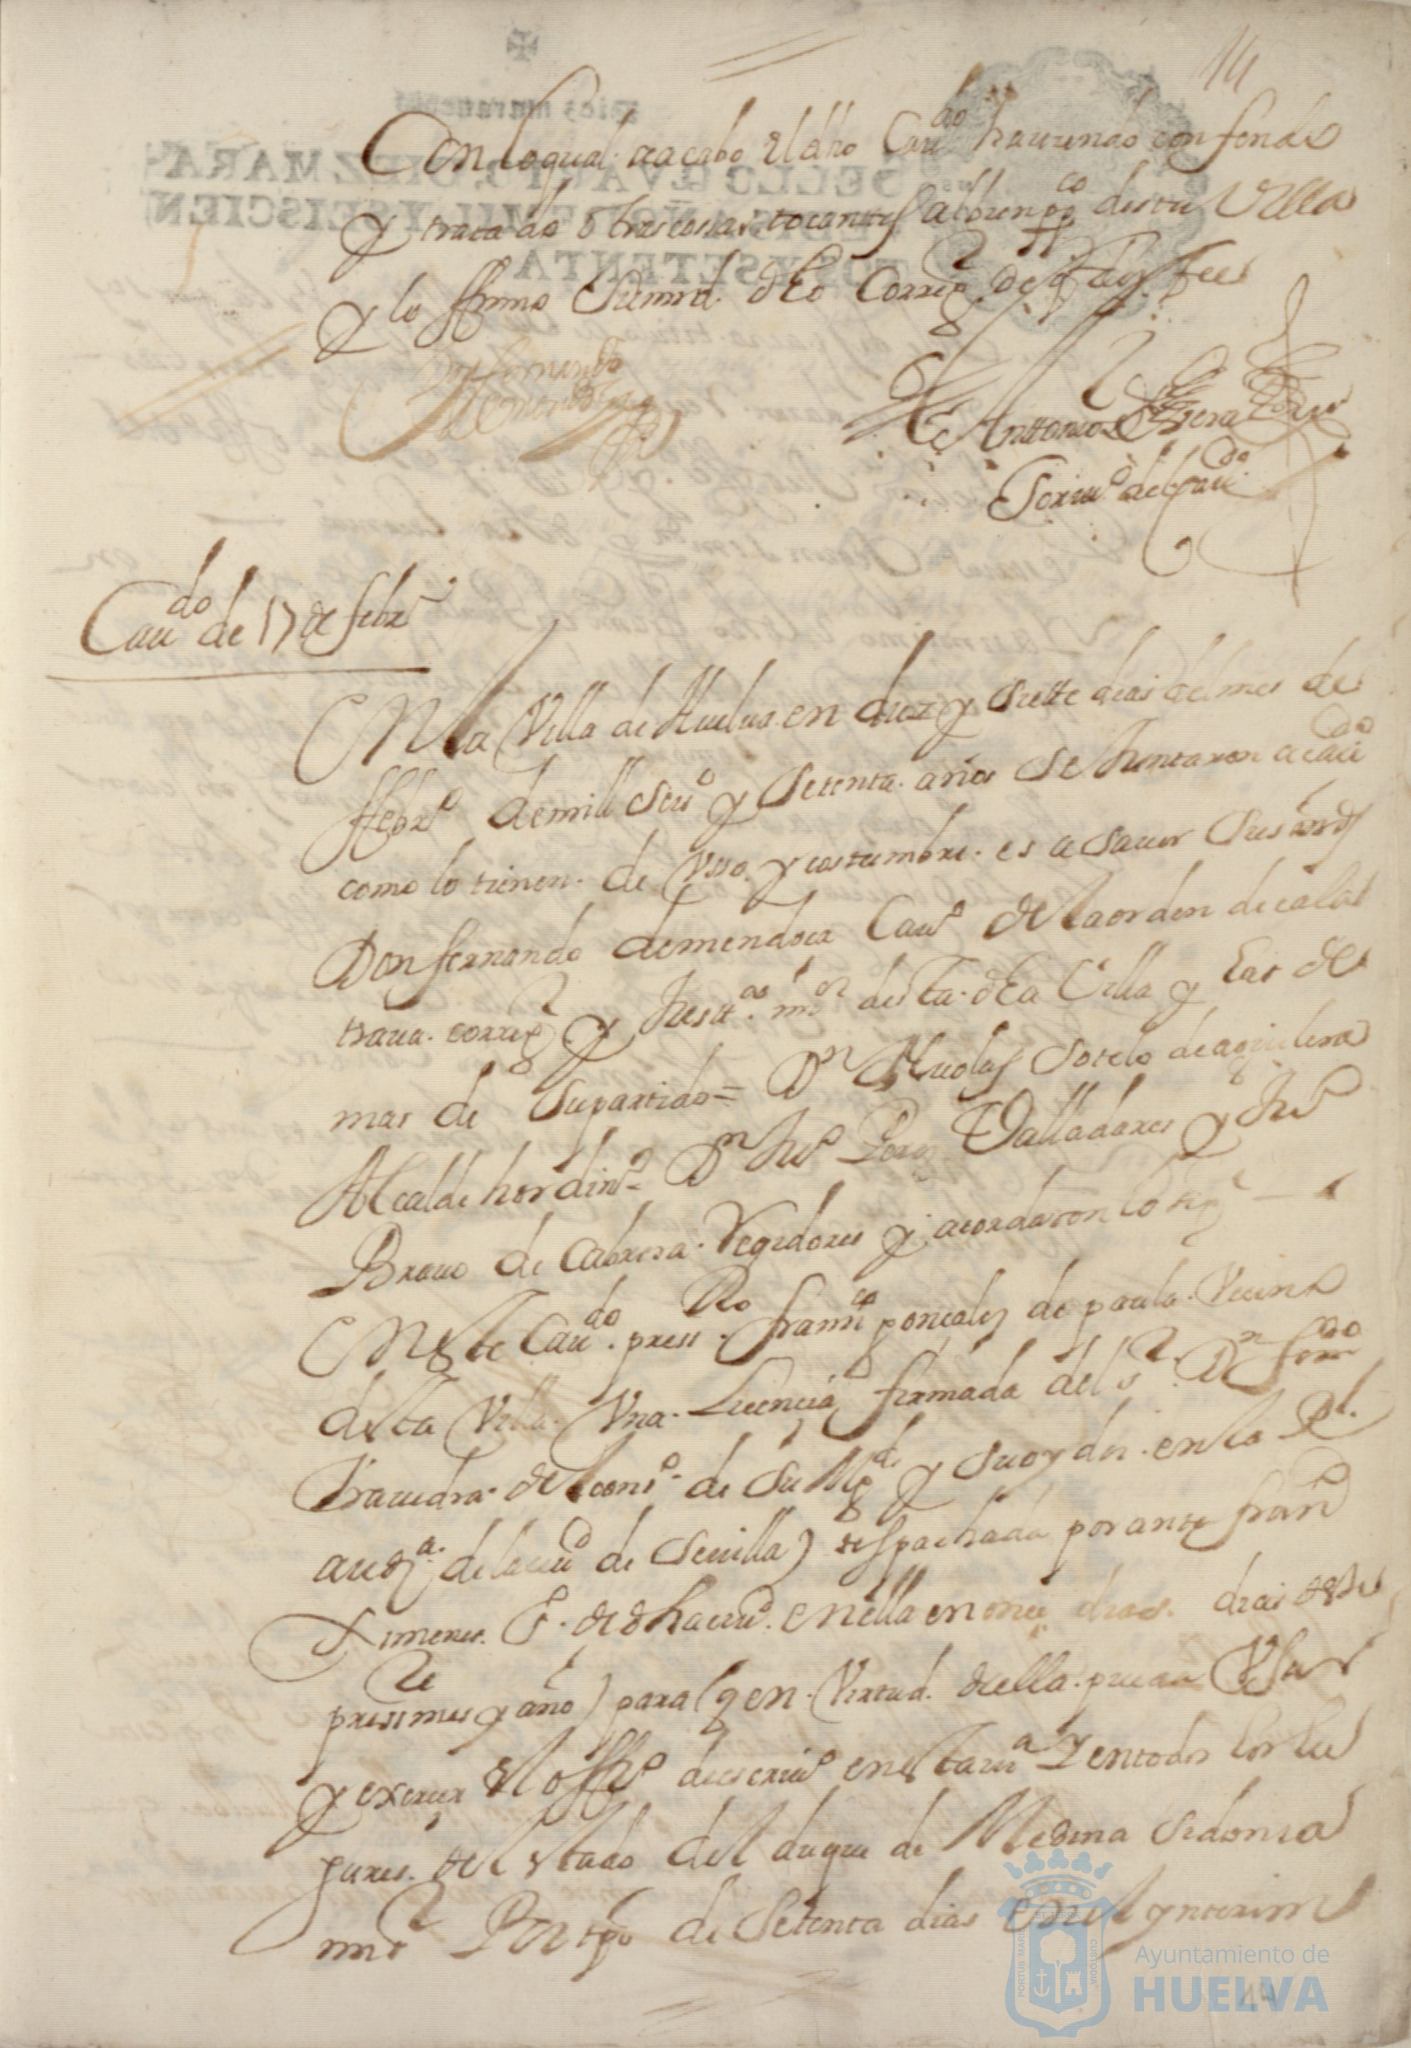 14
Con lo qual se acabo el dho Cavdo haviendo conferido
y tratado otras cosas tocantes al bien pco desta Villa
y lo ffirmo Su md. dho Corregr de q doy fee
Don fernando
de mendoça
Antonio de
Scrivo del Cavdo
Cavdo de 17 de febro
En la Villa de Huelva en diez y siete dias del mes de
ffebro de mill seiso y setenta años se Juntaron a cavdo
como lo tienen de vsso y costumbre es a saver sus mrds
Don fernando de mendoça Cavo de la orden de cala
trava correxr y Justas mor desta dha Villa y las de
mas de su partido = Dn Nicolas Sotelo de aguilera
Alcalde hordino Dn Juo Perez Valladares y Juo
Bravo de Cabrera Regidores y acordaron lo sigte
En este Cavdo presto franco gonçales de paula Vecino
desta Villa Vna Licencia firmada del sr Dn ferndo
Travedra del consо de Su Mgde y su oydor en la Rl
auda de la ciud de Sevilla) despachada por ante franco
Ximenes Es de dha ciud en ella en once dias deste
preste mes y año) para q en Virtud della pueda Vsar
y exercer el offio de escrivo en esta Va y en todos los lu
gares del estado del duque de Medina Sidonia
mi sr Por tpo de setenta dias en el ynterin
Ayuntamiento de
HUELVA